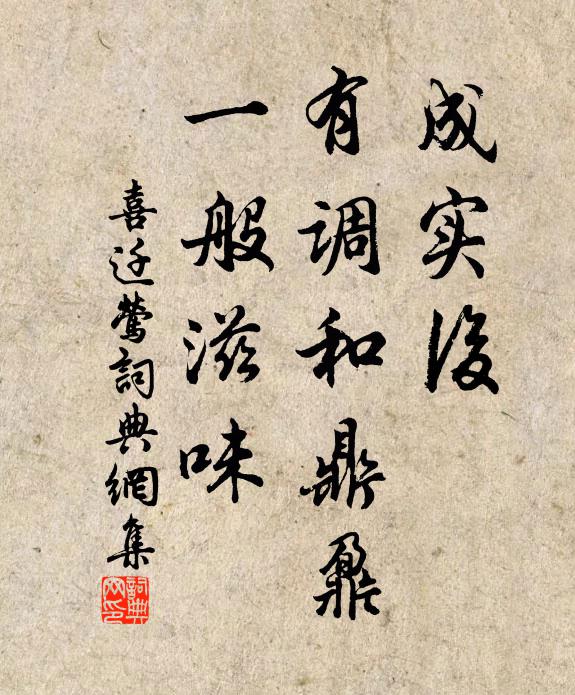 成实後
有调和鼎鼐
一般滋味
喜迁莺詞典網集
詞典
网印